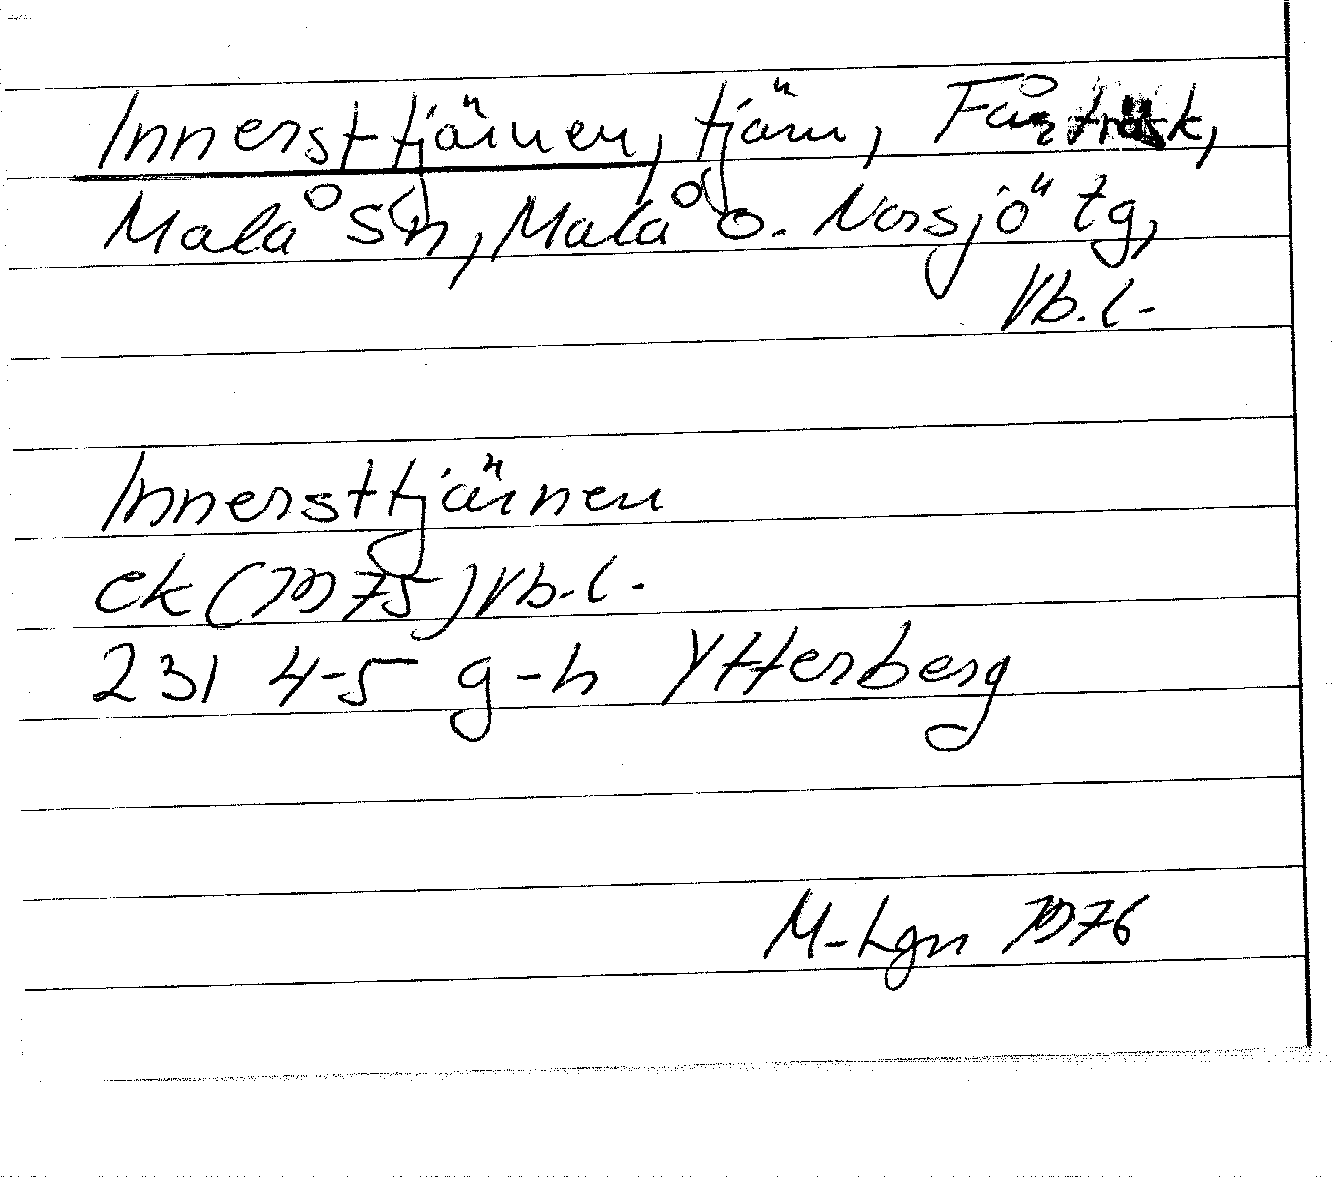 Innersttjärnen, tjärn, Fårträsk,
Malå sn, Malå o. Norsjö tg,
Vb.l.
Innersttjärnen
ek (1975) Vb.l.
231 4-5 g-h Ytterberg
M-Lgn 1976